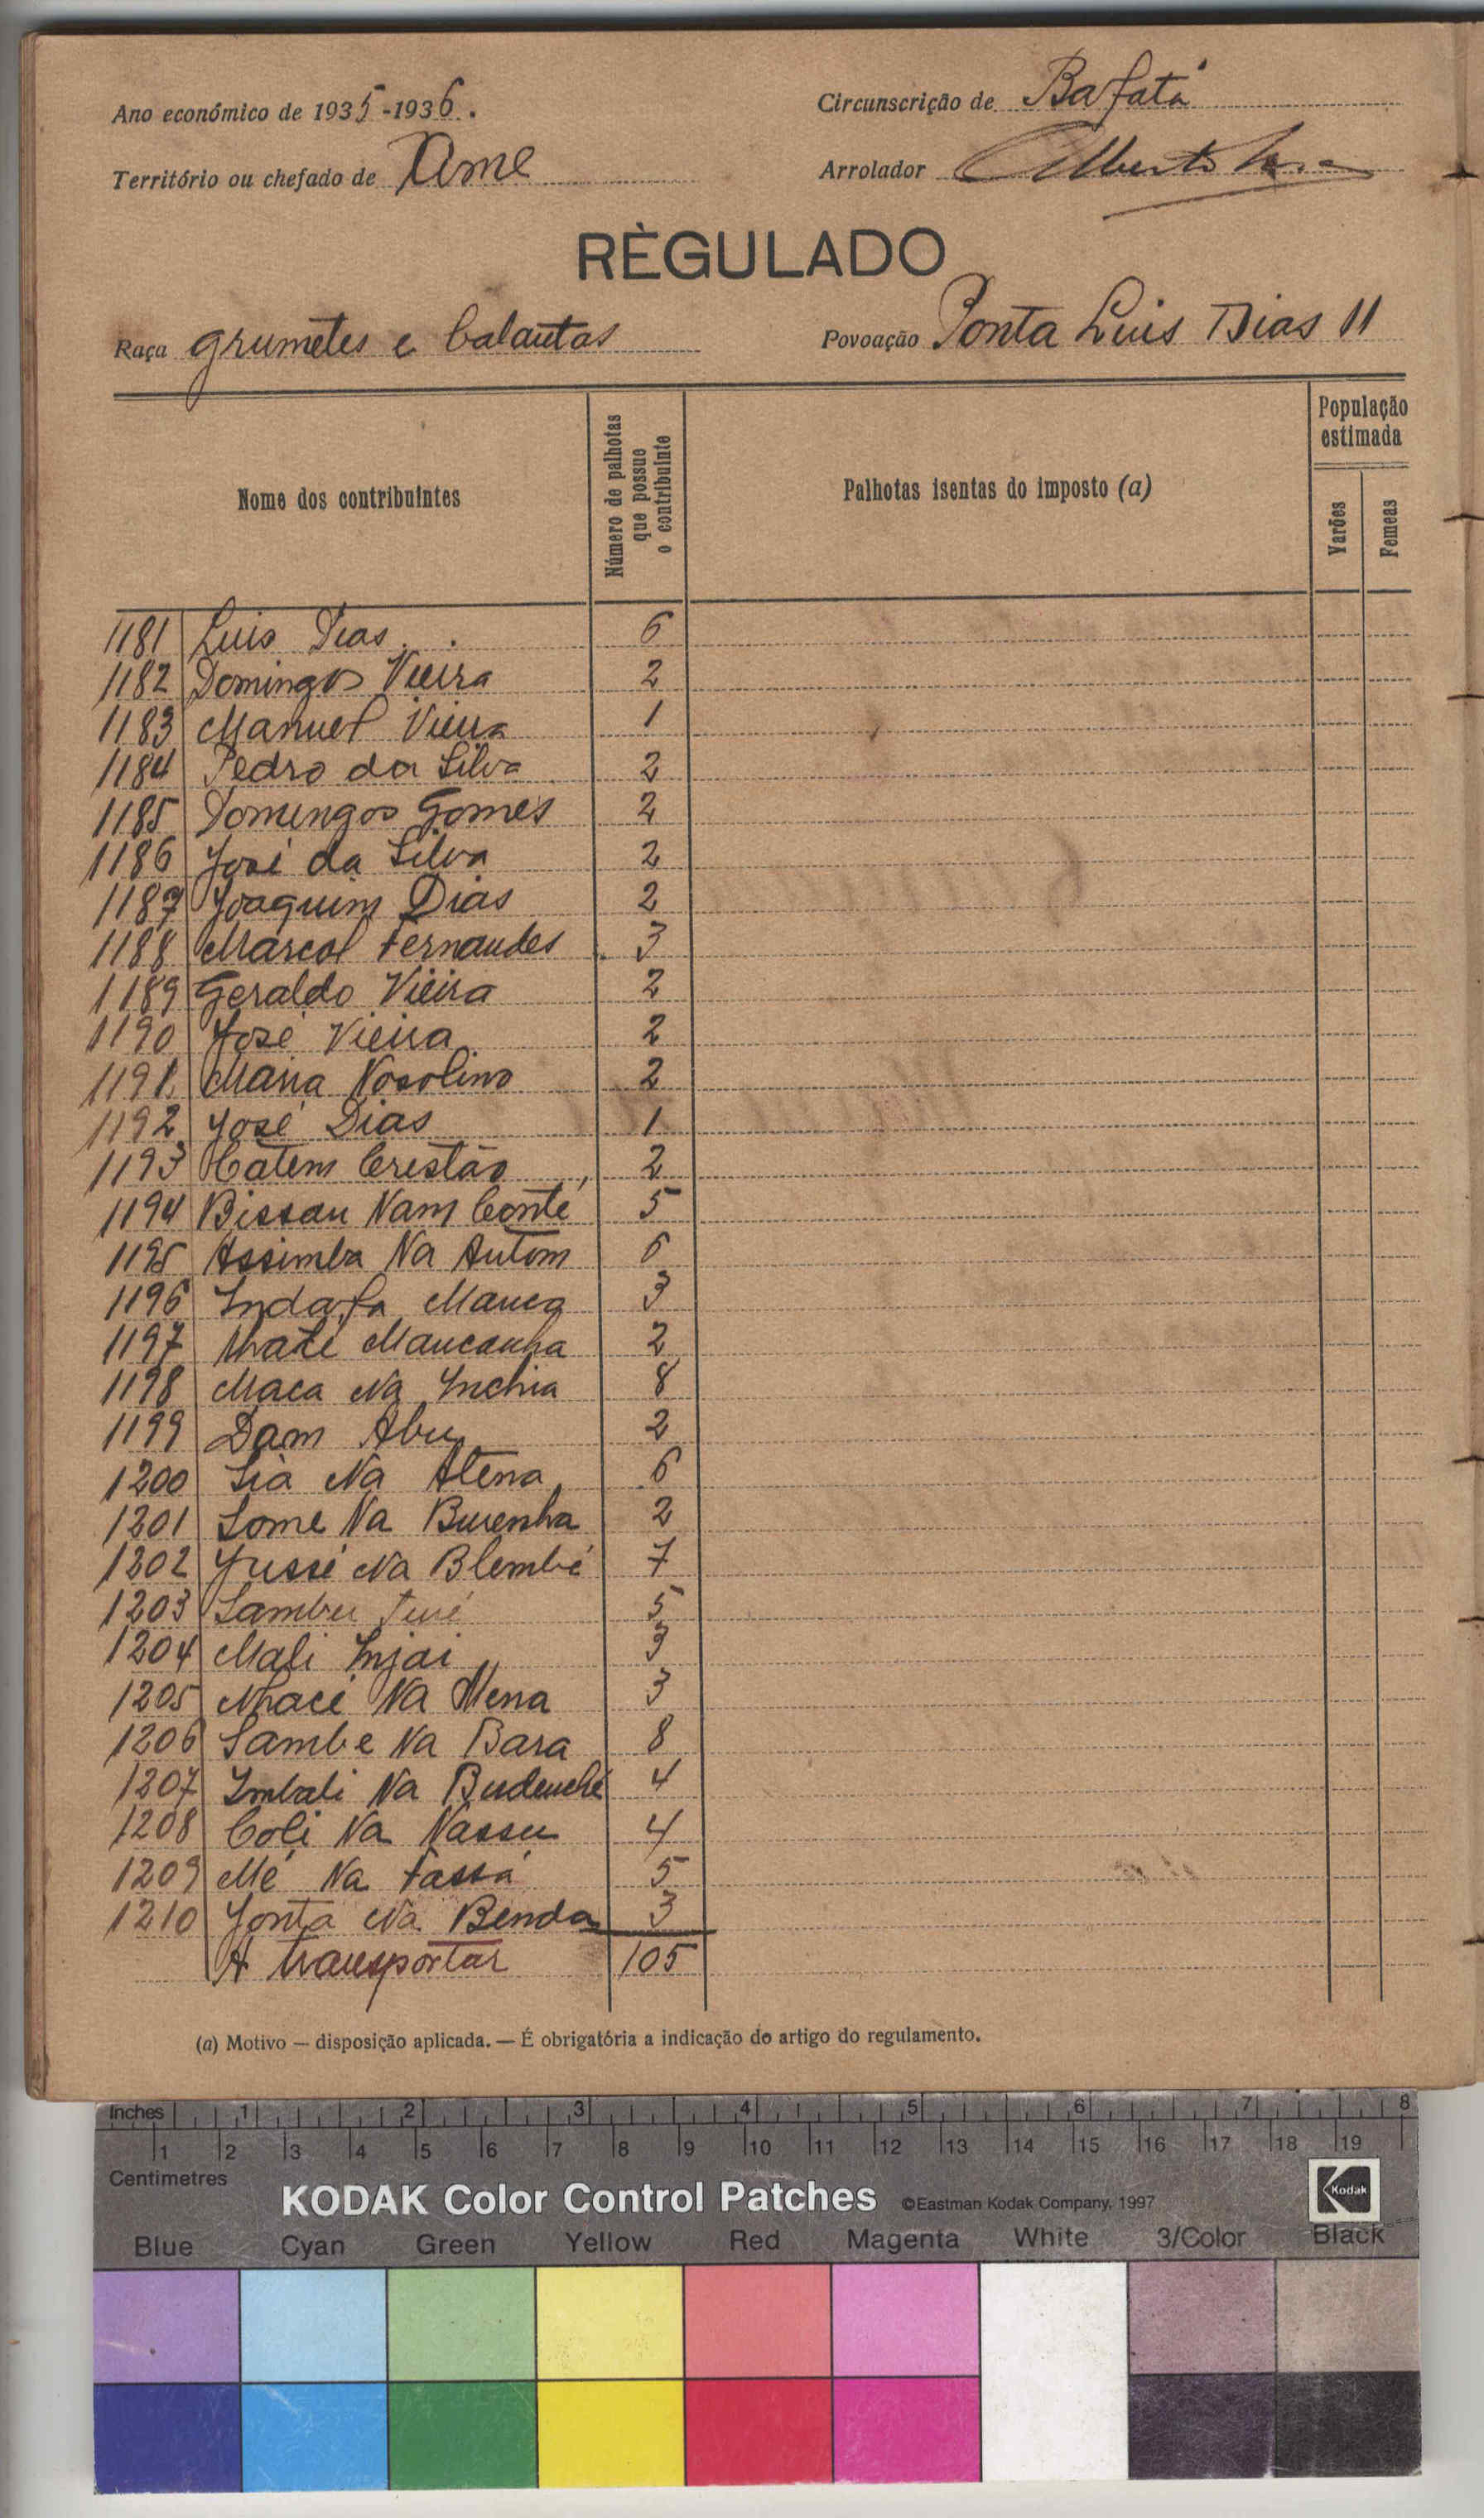 Ano económico de 1935-1936.
Circunscrição de Bafatá
Território ou chefado de Ame
Arrolador Alberto
RÈGULADO
Raça grumetes e balantas
Povoação Ponta Luis Dias 11
Nome dos contribuintes
Número de palhotas que possue o contribuinte
Palhotas isentas do imposto (a)
População estimada
Varões
Femeas
1181 Luis Dias 6
1182 Domingos Vieira 2
1183 Manuel Vieira 1
1184 Pedro da Silva 2
1185 Domingos Gomes 2
1186 José da Silva 2
1187 Joaquim Dias 2
1188 Marcol Fernandes 3
1189 Geraldo Vieira 2
1190 José Vieira 2
1191 Maria Nosolino 2
1192 José Dias 1
1193 Catem Crestão 2
1194 Bissau Nam Conté 5
1195 Assimba Na Autom 6
1196 Indafa Manca 3
1197 Mancanha 2
1198 Maca Na Inchia 8
1199 Dam Abu 2
1200 Sia Na Atena 6
1201 Some Na Burenha 2
1202 Jussé Na Blembé 7
1203 Sambu Turé 5
1204 Mali Injai 3
1205 Na Mena 3
1206 Sambe Na Bara 8
1207 Imbali Na 4
1208 Coli Na Nassu 4
1209 Mé Na Fassá 5
1210 Jonta Na Benda 3
A transportar 105
(a) Motivo — disposição aplicada. — É obrigatória a indicação do artigo do regulamento.
Inches 1 2 3 4 5 6 7 8
1 2 3 4 5 6 7 8 9 10 11 12 13 14 15 16 17 18 19
Centimetres
KODAK Color Control Patches ©Eastman Kodak Company, 1997 Kodak
Blue Cyan Green Yellow Red Magenta White 3/Color Black